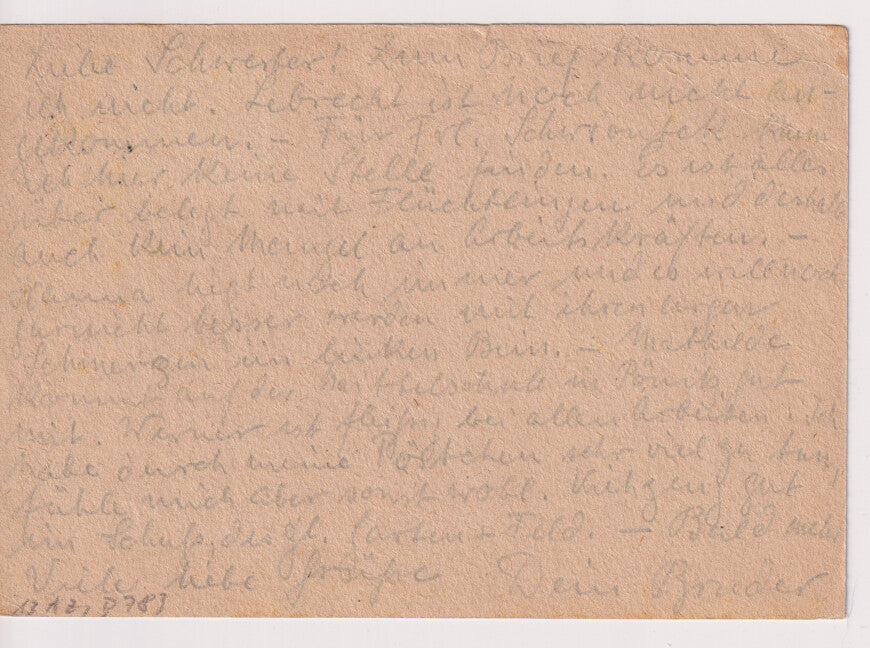 Liebe Schwester! Zum Brief komme
ich nicht. Lebrecht ist noch nicht an-
gekommen. – Für Frl. kann
ich hier keine Stelle finden. Es ist alles
über belegt mit Flüchtlingen und deshalb
auch kein Mangel an Arbeitskräften. –
Hanna liegt noch immer und es will noch
garnicht besser werden mit ihren argen
Schmerzen im linken Bein. – Mathilde
kommt auf der in gut
mit. Werner ist fleißig bei allen Arbeiten. ich
habe durch meine Pöstchen sehr viel zu tun,
fühle mich aber sonst wohl. gut
im Schuß, desgl. Garten + Feld. – Bald mehr
Viele liebe Grüße Dein Bruder